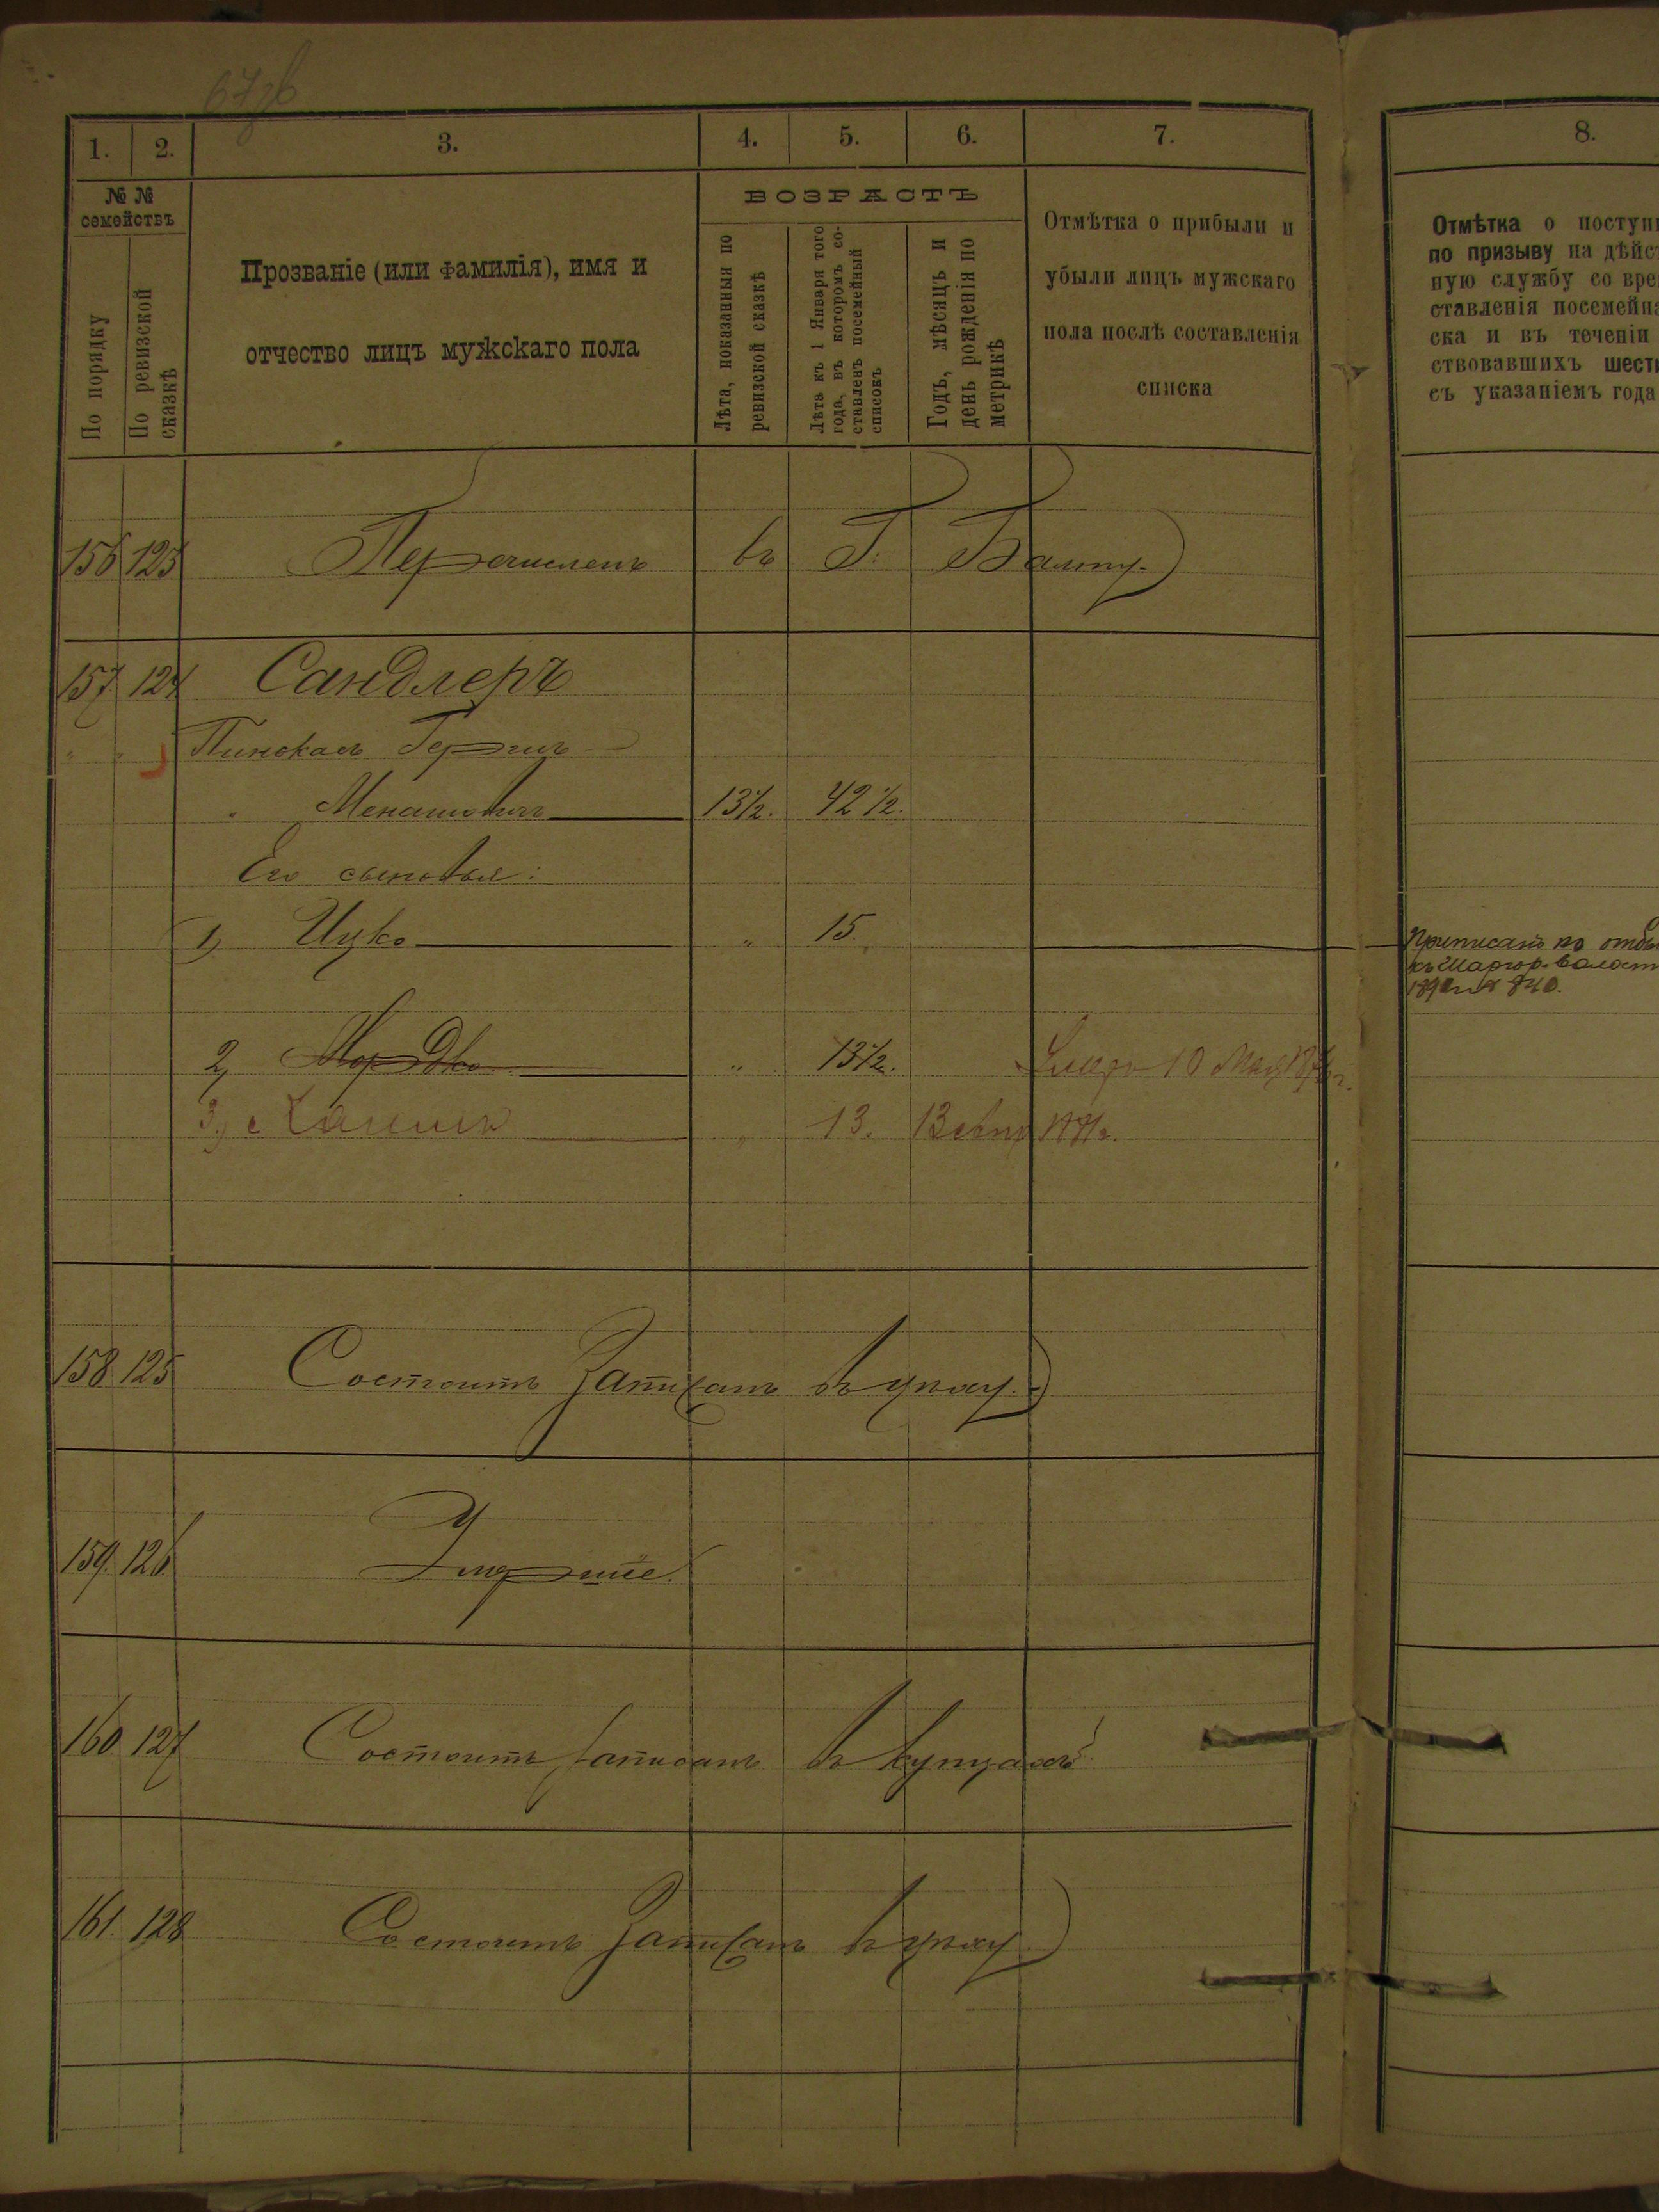 1. 2. 3. 4. 5. 6. 7. 8.
№ № семействъ
По порядку
По ревизской сказкѣ
Прозваніе (или фамилія), имя и
отчество лицъ мужскаго пола
ВОЗРАСТЪ
Лѣта, показанныя по
ревизской сказкѣ
Лѣта къ 1 Января того
года, въ которомъ со-
ставленъ посемейный
списокъ
Годъ, мѣсяцъ и
день рожденія по
метрикѣ
Отмѣтка о прибыли и
убыли лицъ мужскаго
пола послѣ составленія
списка
Отмѣтка о поступ
по призыву на дѣйс
ную службу со вре
ставленія посемейн
ска и въ теченіи
ствовавшихъ шест
съ указаніемъ года
156 123 Перечисленъ въ Г. Балту.
157 124 Сандлеръ
" " Пинхасъ Гершъ
" Менашовичъ 13½. 42½.
Его сыновья:
1, Ицко " 15.
Приписанъ по отбы
къ Шаргор. волост
2, Мордко " 13½. Умеръ 10 Мая
3, " 13.
158 125 Состоитъ Записанъ въ цеху.
159. 126 Умершіе.
160 127 Состоитъ записанъ въ купцахъ.
161. 128 Состоитъ Записанъ въ цеху